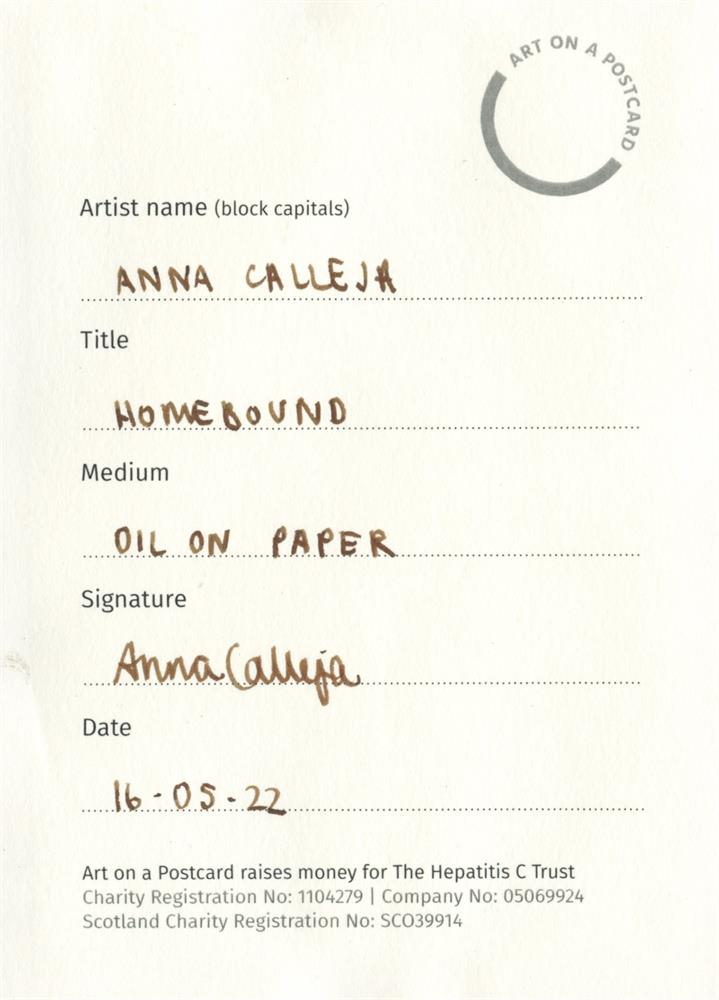 ART ON A POSTCARD
Artist name (block capitals)
ANNA CALLEJA
Title
HOMEBOUND
Medium
OIL ON PAPER
Signature
Anna Calleja
Date
16-05-22
Art on a Postcard raises money for The Hepatitis C Trust
Charity Registration No: 1104279 | Company No: 05069924
Scotland Charity Registration No: SCO39914